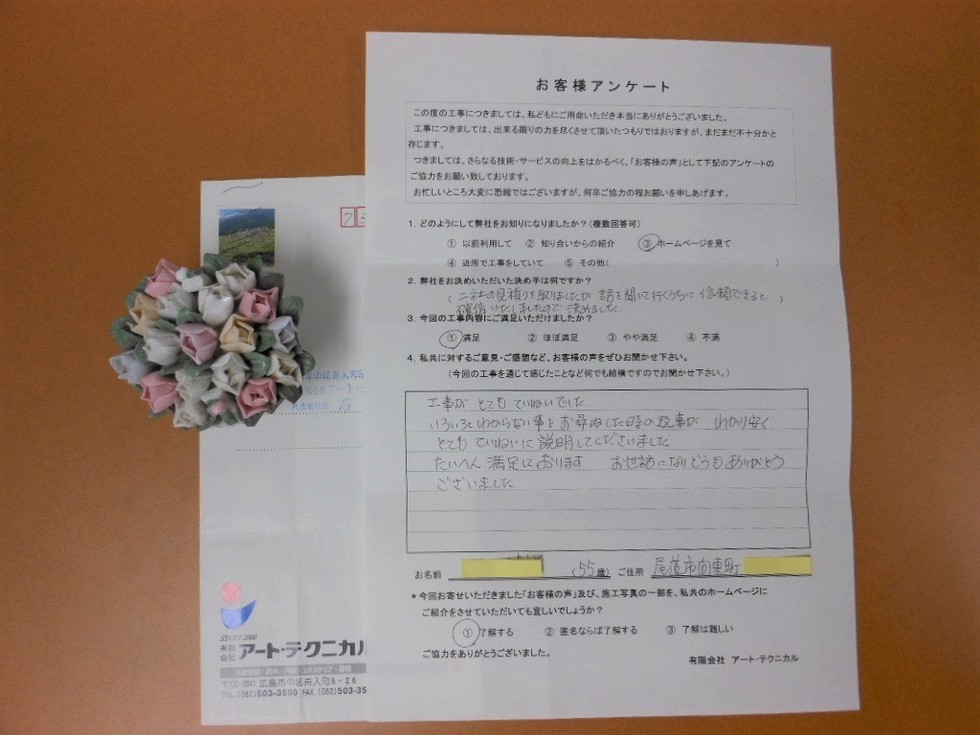 お客様アンケート
この度の工事につきましては、私どもにご用命いただき本当にありがとうございました。
工事につきましては、出来る限りの力を尽くさせて頂いたつもりではおりますが、まだまだ不十分かと
存じます。
つきましては、さらなる技術・サービスの向上をはかるべく、「お客様の声」として下記のアンケートの
ご協力をお願い致しております。
お忙しいところ大変に恐縮ではございますが、何卒ご協力の程お願いを申しあげます。
1．どのようにして弊社をお知りになりましたか？(複数回答可)
① 以前利用して ② 知り合いからの紹介 ③ ホームページを見て
④ 近所で工事をしていて ⑤ その他( )
2．弊社をお決めいただいた決め手は何ですか？
( 二社の見積りを取りましたが 話を聞いて行くうちに 信頼できると )
確信いたしましたので 決めました
3．今回の工事内容にご満足いただけましたか？
① 満足 ② ほぼ満足 ③ やや満足 ④ 不満
4．私共に対するご意見・ご感想など、お客様の声をぜひお聞かせ下さい。
(今回の工事を通じて感じたことなど何でも結構ですのでお聞かせ下さい。)
工事が とても ていねいでした
いろいろと わからない事を お尋ねした時の 返事が わかり安く
とても ていねいに 説明してくださいました
たいへん 満足して おります お世話になり どうも ありがとう
ございました
お名前 (55歳) ご住所 尾道市向東町
＊今回お寄せいただきました「お客様の声」及び、施工写真の一部を、私共のホームページに
ご紹介をさせていただいても宜しいでしょうか？
① 了解する ② 匿名ならば了解する ③ 了解は難しい
ご協力をありがとうございました。
有限会社 アート・テクニカル
START 2000
有限会社 アート・テクニカル
広島市中区舟入町6-26
TEL.(082)503-3500 FAX.(082)503-35